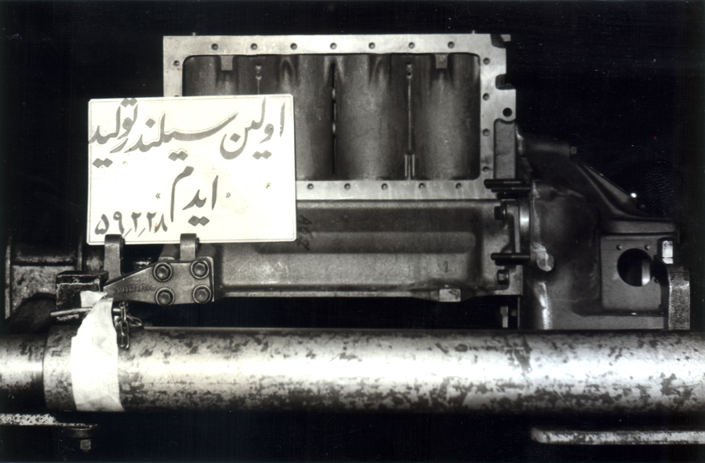 اولین سیلندر تولید
ایدم
۵۹٫۲٫۲۸